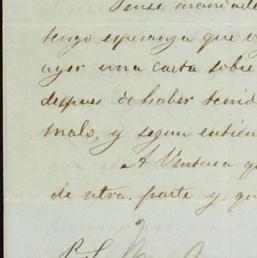 Pense mandarle
tengo esperanza que
ayer una carta sobre
despues de haber tenid
malo, y segun entien
A Ventura q
de ntra. parte y qu
P. S.